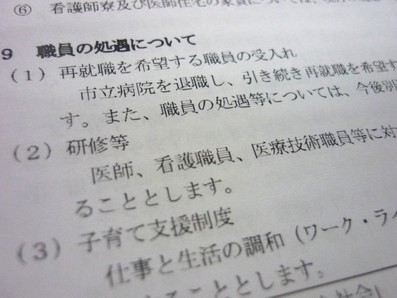 ⑥ 看護師寮及び医師住宅の家賃については、
9 職員の処遇について
(1) 再就職を希望する職員の受入れ
市立病院を退職し、引き続き再就職を希望す
す。また、職員の処遇等については、今後別
(2) 研修等
医師、看護職員、医療技術職員等に対
ることとします。
(3) 子育て支援制度
仕事と生活の調和（ワーク・ライ
ることとします。